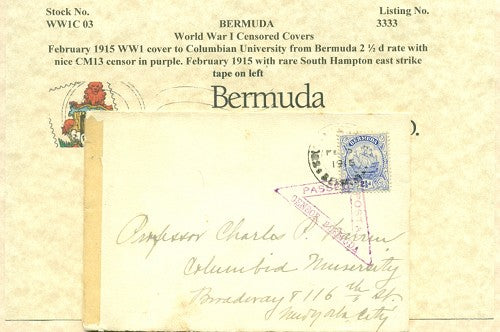 Stock No.
WW1C 03
BERMUDA
Listing No.
3333
World War I Censored Covers
February 1915 WW1 cover to Columbian University from Bermuda 2 ½ d rate with
nice CM13 censor in purple. February 1915 with rare South Hampton east strike
tape on left
Bermuda
BERMUDA
PASSED
CENSOR BERMUDA
Professor Charles P. Warren
Columbia University
Broadway & 116th St.
New York City